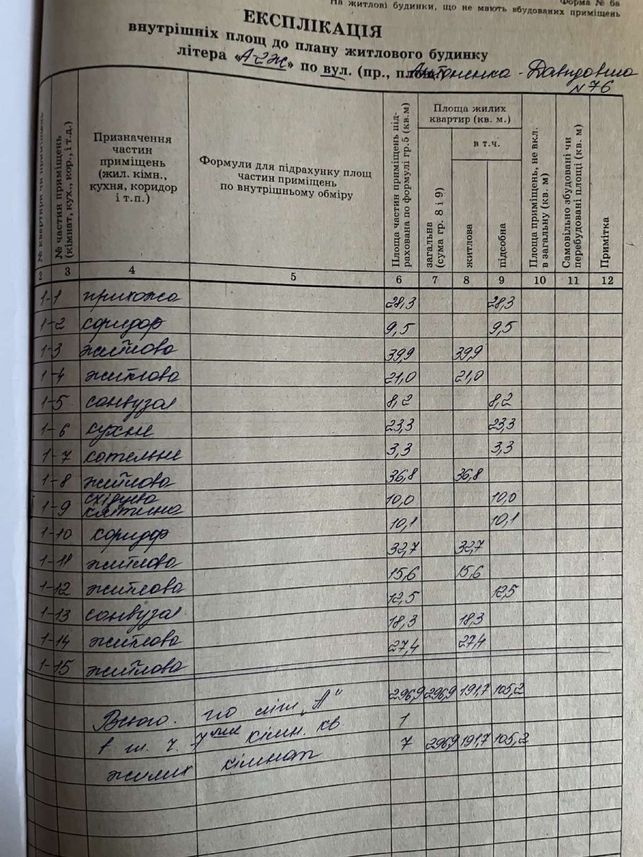 Форма № 6а
На житлові будинки, що не мають вбудованих приміщень
ЕКСПЛІКАЦІЯ
внутрішніх площ до плану житлового будинку
літера «А-2ж» по вул. (пр., площ.) Антоненка-Давидовича
№76
№ квартири чи приміщень
№ частин приміщень (кімнат, кух., кор., і т.д.)
Призначення частин приміщень (жил. кімн., кухня, коридор і т.п.)
Формули для підрахунку площ частин приміщень по внутрішньому обміру
Площа частин приміщень підрахована по формулі гр.5 (кв.м)
Площа жилих квартир (кв. м.)
загальна (сума гр. 8 і 9)
в т.ч.
житлова
підсобна
Площа приміщень, не вкл. в загальну (кв. м)
Самовільно збудовані чи перебудовані площі (кв. м)
Примітка
3 4 5 6 7 8 9 10 11 12
1-1 прихожа 28,3 28,3
1-2 коридор 9,5 9,5
1-3 житлова 39,9 39,9
1-4 житлова 21,0 21,0
1-5 санвузол 8,2 8,2
1-6 кухне 23,3 23,3
1-7 котельне 3,3 3,3
1-8 житлова 36,8 36,8
1-9 східцева клітина 10,0 10,0
1-10 коридор 10,1 10,1
1-11 житлова 32,7 32,7
1-12 житлова 15,6 15,6
1-13 санвузол 12,5 12,5
1-14 житлова 18,3 18,3
1-15 житлова 27,4 27,4
Всього по літ. „А" 296,9 296,9 191,7 105,2
1 кімн. кв 1
жилих кімнат 7 296,9 191,7 105,2